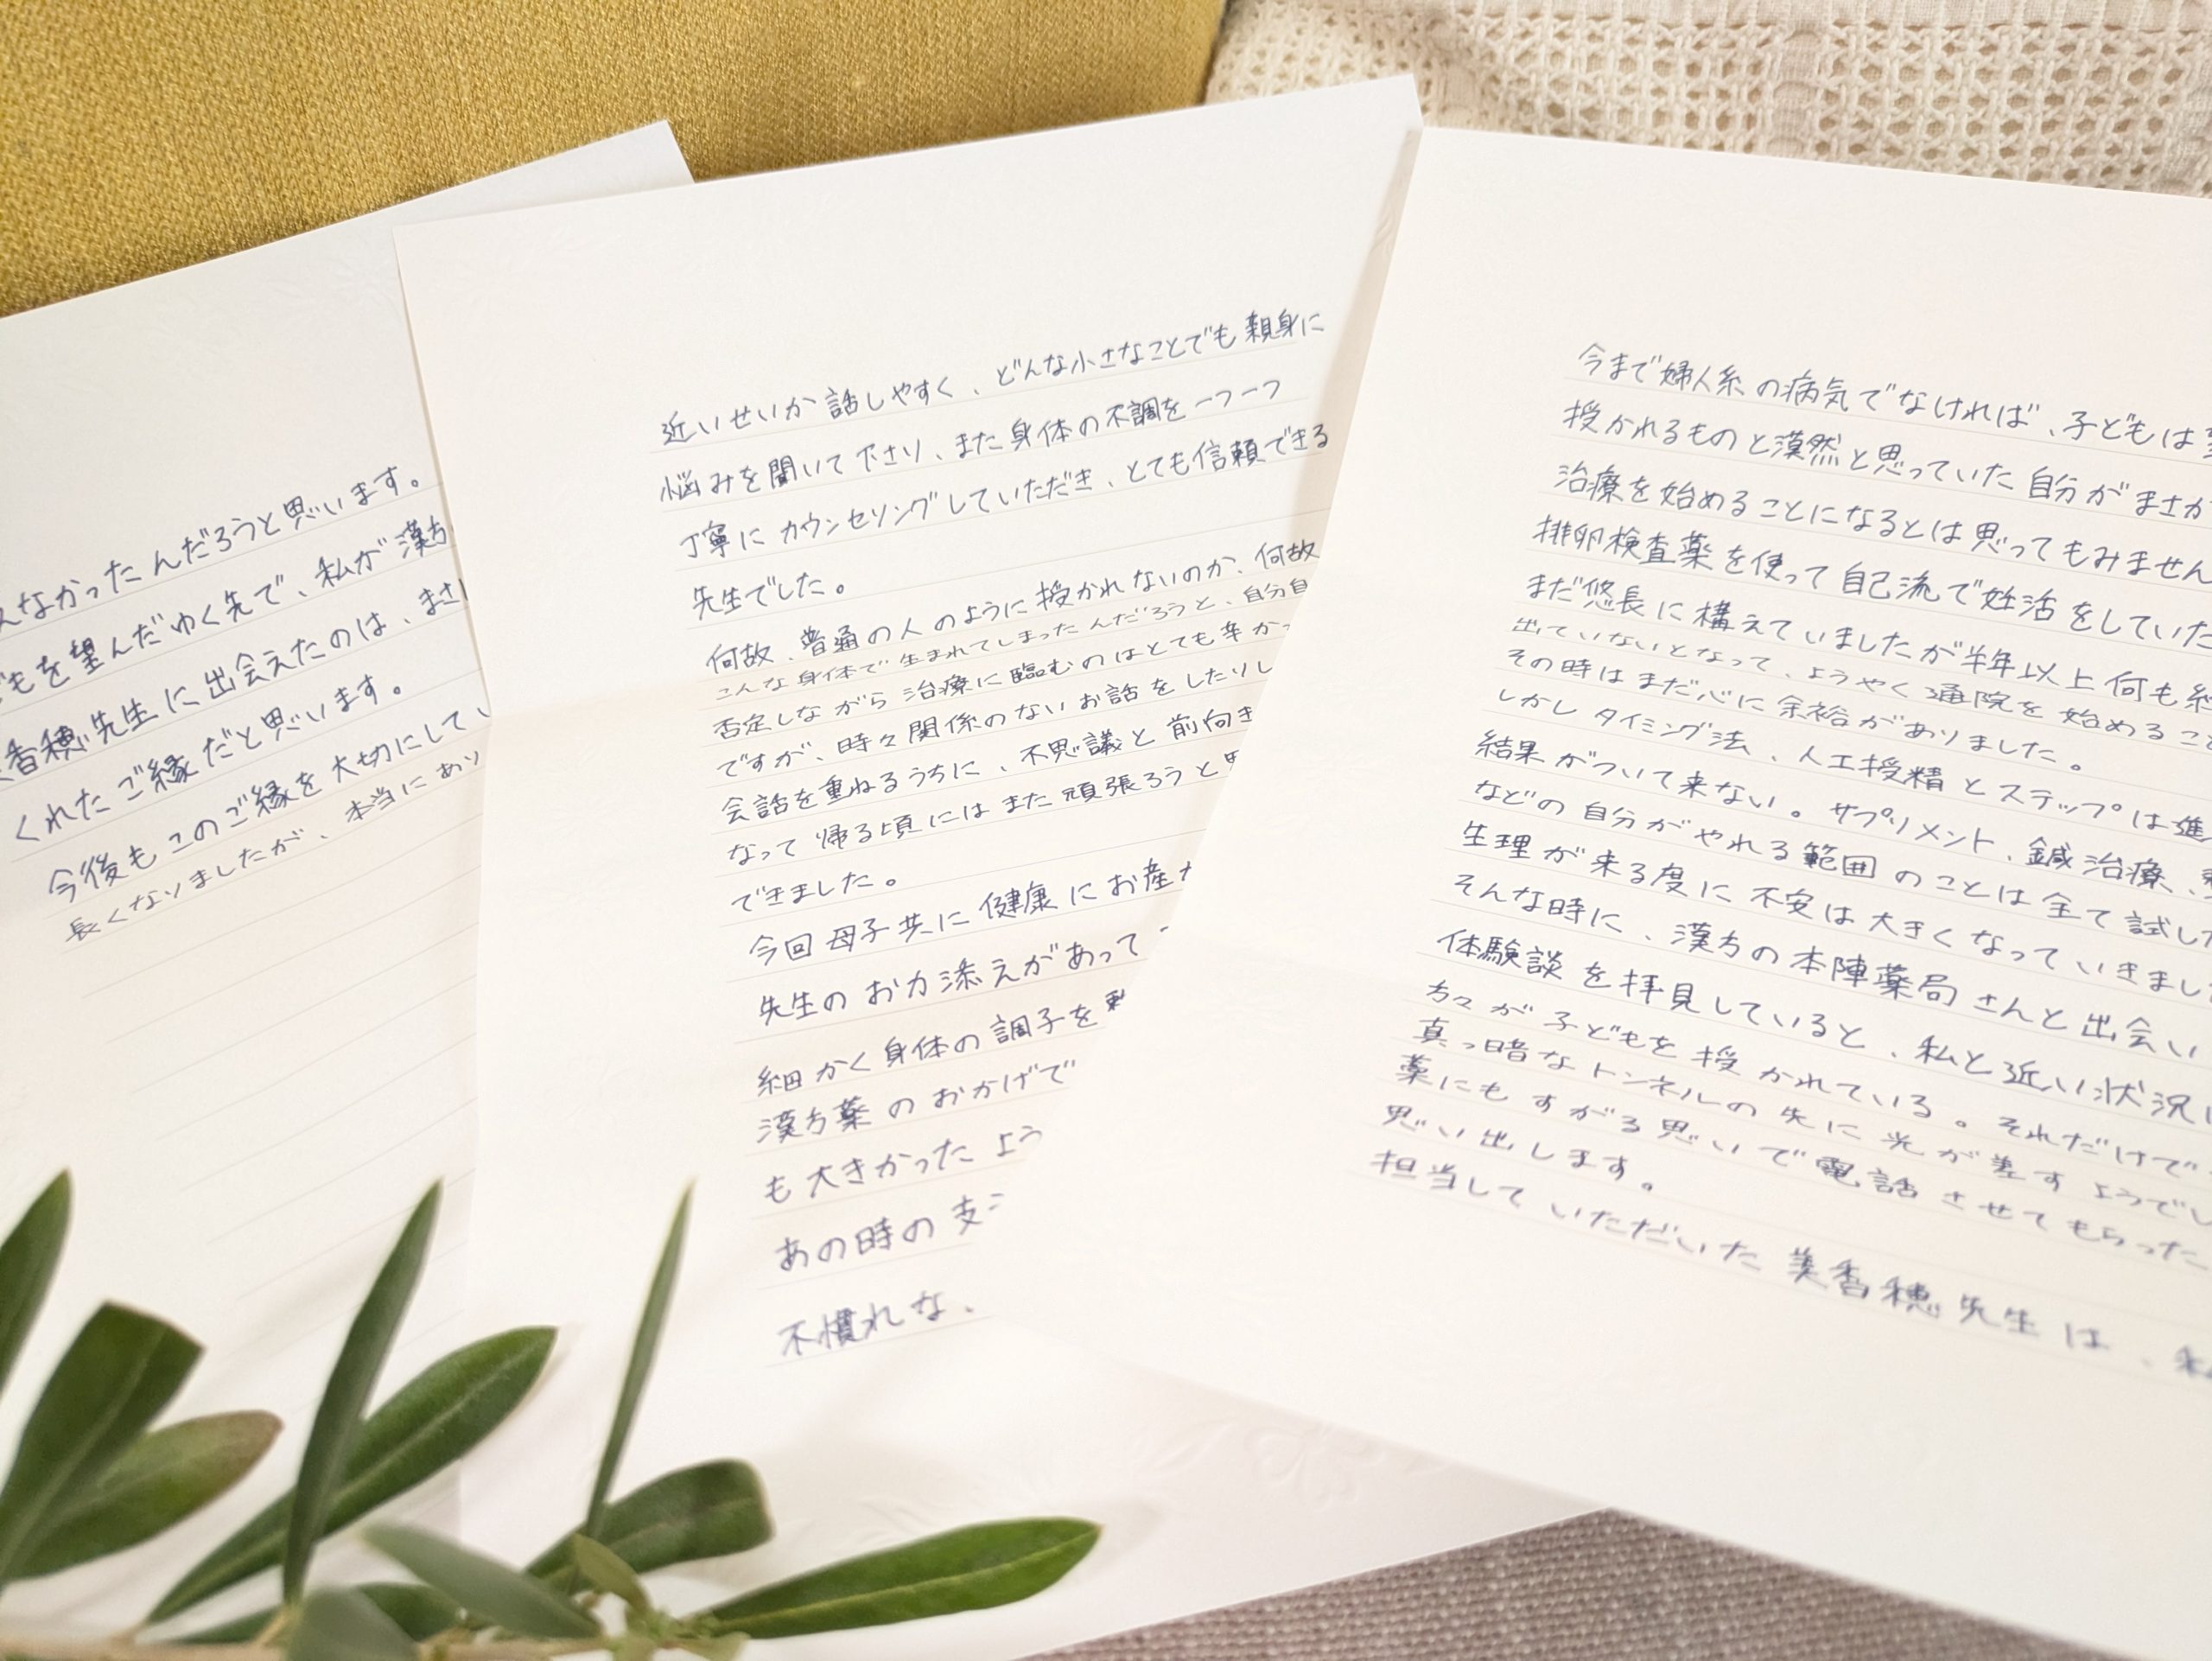 今まで婦人系の病気でなければ、子どもは
授かれるものと漠然と思っていた自分がまさか
治療を始めることになるとは思ってもみません
排卵検査薬を使って自己流で妊活をしていた
まだ悠長に構えていましたが半年以上何も
出ていないとなって、ようやく通院を始めるこ
その時はまだ心に余裕がありました。
しかしタイミング法、人工授精とステップは進
結果がついて来ない。サプリメント、鍼治療、
などの自分がやれる範囲のことは全て試し
生理が来る度に不安は大きくなっていきまし
そんな時に、漢方の本陣薬局さんと出会い
体験談を拝見していると、私と近い状況
方々が子どもを授かれている。それだけで
真っ暗なトンネルの先に光が差すようでし
薬にもすがる思いで電話させてもらった
思い出します。
担当していただいた美香穂先生は、私
近いせいか話しやすく、どんな小さなことでも親身に
悩みを聞いて下さり、また身体の不調を一つ一つ
丁寧にカウンセリングしていただき、とても信頼できる
先生でした。
何故、普通の人のように授かれないのか、何故
こんな身体で生まれてしまったんだろうと、自分自
否定しながら治療に臨むのはとても辛かっ
ですが、時々関係のないお話をしたりし
会話を重ねるうちに、不思議と前向き
なって帰る頃にはまた頑張ろうと思
できました。
今回母子共に健康にお産
先生のお力添えがあって
細かく身体の調子を
漢方薬のおかげで
も大きかったよう
あの時の支
不慣れな、
えなかったんだろうと思います。
どもを望んだゆく先で、私が漢方
香穂先生に出会えたのは、まさ
くれたご縁だと思います。
今後もこのご縁を大切にしてい
長くなりましたが、本当にあり